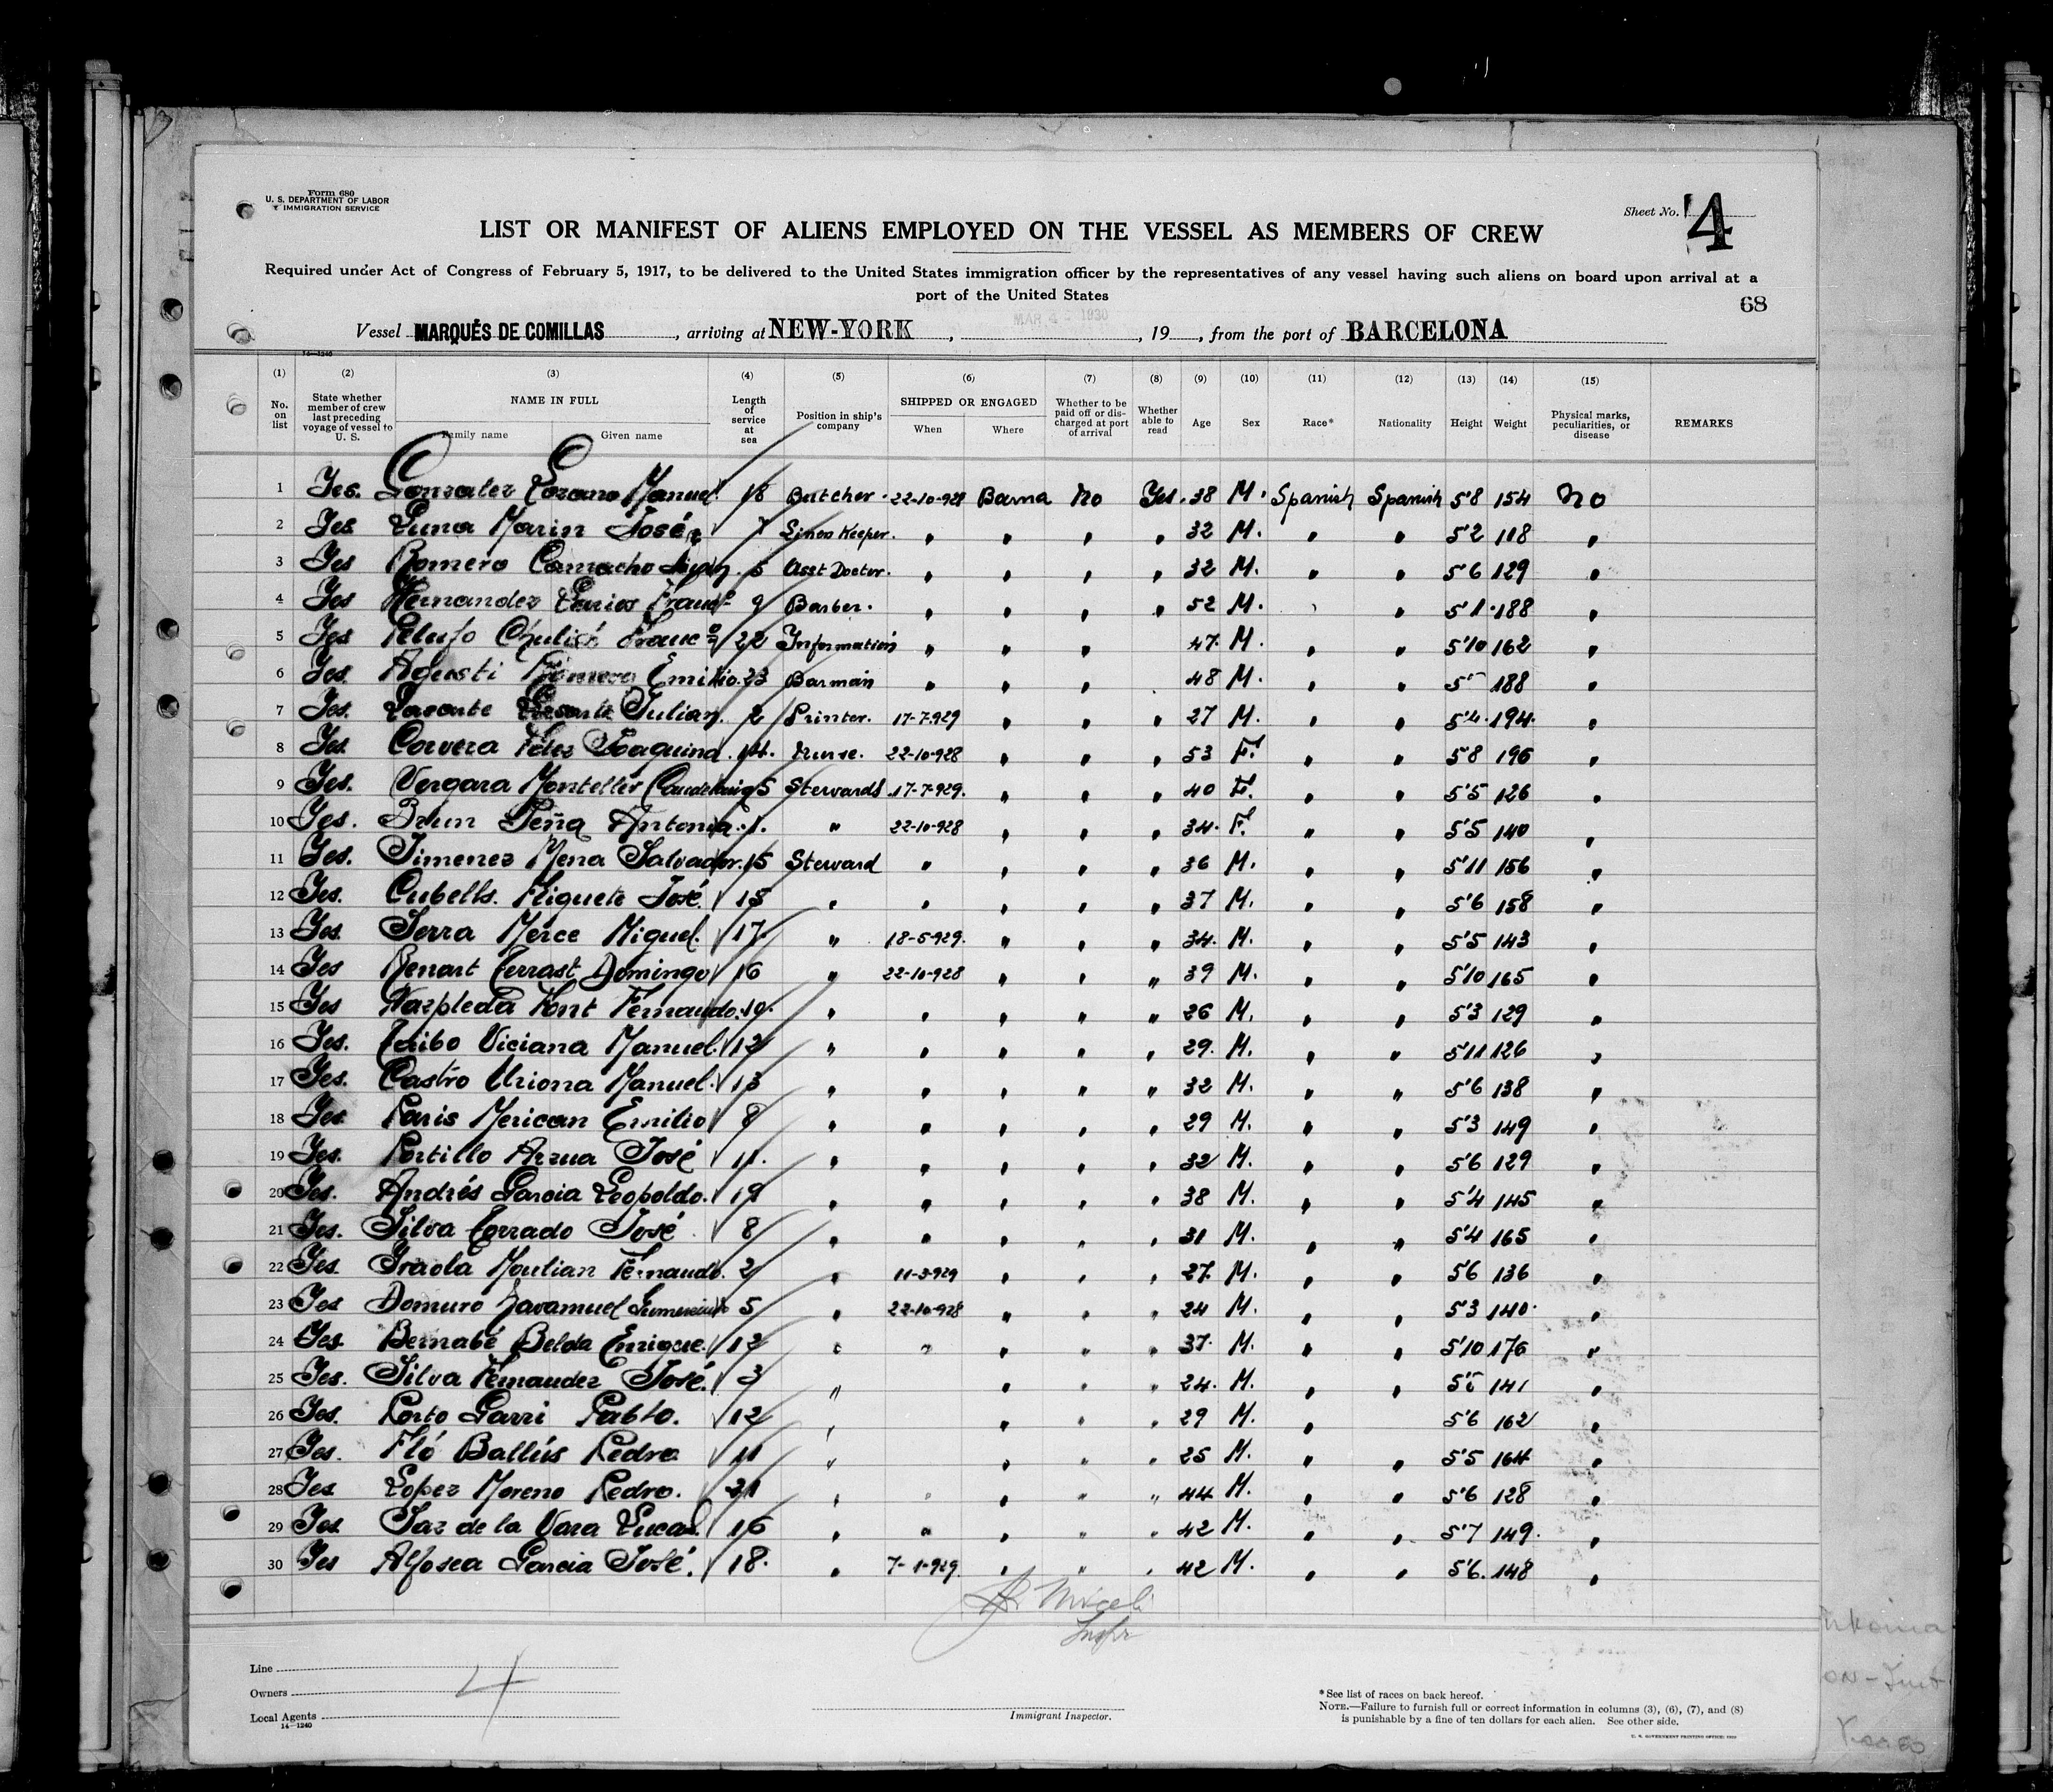 Form 680
U. S. DEPARTMENT OF LABOR
IMMIGRATION SERVICE
Sheet No. 4
LIST OR MANIFEST OF ALIENS EMPLOYED ON THE VESSEL AS MEMBERS OF CREW
Required under Act of Congress of February 5, 1917, to be delivered to the United States immigration officer by the representatives of any vessel having such aliens on board upon arrival at a
port of the United States
68
MAR 1930
Vessel MARQUÉS DE COMILLAS, arriving at NEW-YORK, , 19 , from the port of BARCELONA
14—1240
(1) (2) (3) (4) (5) (6) (7) (8) (9) (10) (11) (12) (13) (14) (15)
No. on list State whether member of crew last preceding voyage of vessel to U. S. NAME IN FULL Family name Given name Length of service at sea Position in ship's company SHIPPED OR ENGAGED When Where Whether to be paid off or discharged at port of arrival Whether able to read Age Sex Race* Nationality Height Weight Physical marks, peculiarities, or disease REMARKS
1 Yes. Gonzalez Lozano Manuel 18 Butcher. 22-10-928 Barna No Yes. 38 M. Spanish Spanish 5'8 154 No
2 Yes Luna Marin José 7 Linen Keeper. " " " " 32 M. " " 5'2 118 "
3 Yes Romero Camacho 5 Asst Doctor. " " " " 32 M. " " 5'6 129 "
4 Yes Hernandez 9 Barber. " " " " 52 M. " " 5'1 188 "
5 Yes 22 Información " " " 47 M. " " 5'10 162 "
6 Yes. Agusti Emilio. 23 Barman " " " 48 M. " " 188 "
7 Yes. Julian. 2 Printer. 17-7-929 " " " 27 M. " " 5'4 194 "
8 Yes. Corvera Fdez Joaquina. 14. Nurse. 22-10-928 " " " 53 F. " " 5'8 196 "
9 Yes. Vergara 5 Stewards 17-7-929. " " " 40 F. " " 5'5 126 "
10 Yes. Brun Peña Antonia. 1. " 22-10-928 " " " 34. F. " " 5'5 140 "
11 Yes. Jimenez Mena Salvador. 15 Steward " " " " 36 M. " " 5'11 156 "
12 Yes. Cubells. Miquete José. 15 " " " " " 37 M. " " 5'6 158 "
13 Yes. Serra Merce Miguel. 17. " 18-5-929. " " " 34. M. " " 5'5 143 "
14 Yes Renart Domingo 16 " 22-10-928 " " " 39 M. " " 5'10 165 "
15 Yes Font Fernando. 10. " " " " " 26 M. " " 5'3 129 "
16 Yes. Viciana Manuel. 12 " " " " " 29. M. " " 5'11 126 "
17 Yes. Castro Manuel. 13 " " " " " 32 M. " " 5'6 138 "
18 Yes. Paris Merican Emilio 8 " " " " " 29 M. " " 5'3 149 "
19 Yes. Portillo Arzua José 11. " " " " " 32 M. " " 5'6 129 "
20 Yes. Andrés Garcia Leopoldo. 19 " " " " " 38 M. " " 5'4 145 "
21 Yes. Silva Torrado José 8 " " " " " 31 M. " " 5'4 165 "
22 Yes. Moulian Fernando. 2 " 11-3-929 " " " 27. M. " " 5'6 136 "
23 Yes Domuro 5 " 22-10-928 " " " 24 M. " " 5'3 140 "
24 Yes. Bernabé Belda Enrique. 12 " " " " " 37. M. " " 5'10 176 "
25 Yes. Silva Fernandez José. 3 " " " " 24. M. " " 141 "
26 Yes. Porto Garri Pablo. 12 " " " " 29 M. " 5'6 162 "
27 Yes. Fló Ballús Pedro 11 " " " " 25 M. " " 5'5 164 "
28 Yes Lopez Moreno Pedro. 21 " " " " " 44 M. " " 5'6 128 "
29 Yes. Saz de la Vara Lucas. 16 " " " " " 42 M. " " 5'7 149. "
30 Yes Alfosea Garcia José. 18. " 7-1-929 " " " 42 M. " " 5'6. 148 "
Inspr
Line
Owners
Local Agents
14—1240
4
Immigrant Inspector.
*See list of races on back hereof.
NOTE.—Failure to furnish full or correct information in columns (3), (6), (7), and (8)
is punishable by a fine of ten dollars for each alien. See other side.